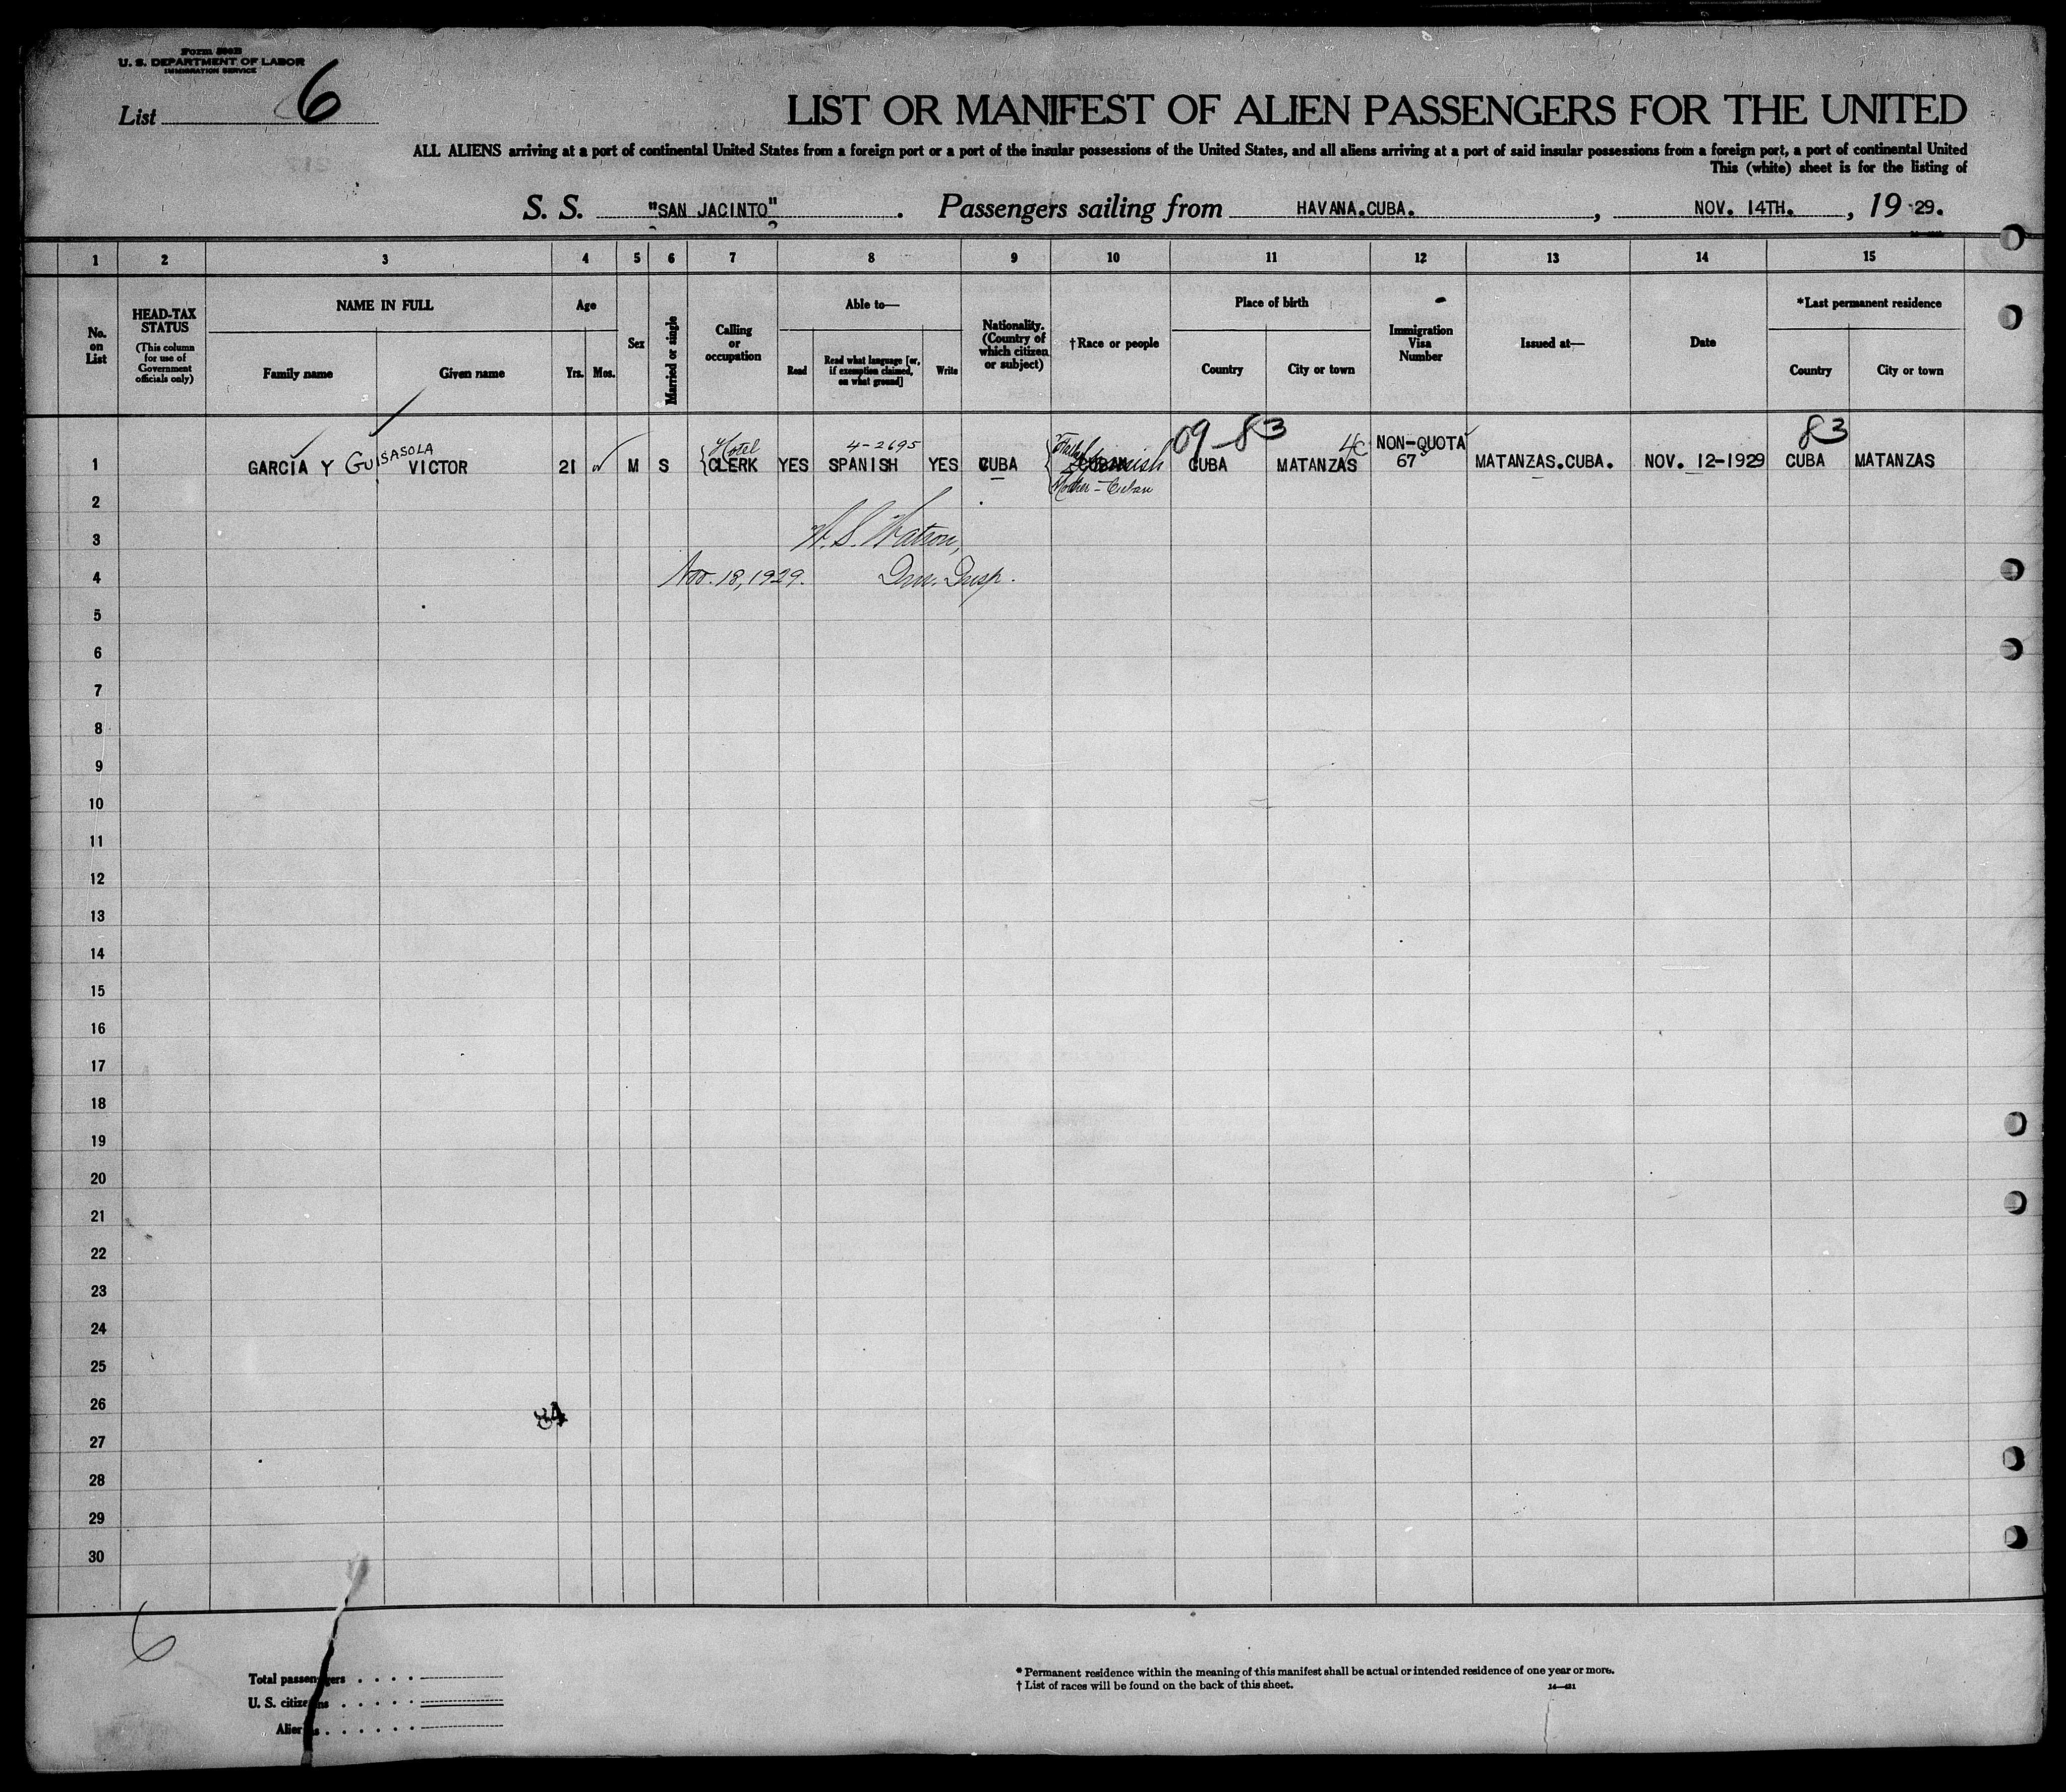 Form 500B
U. S. DEPARTMENT OF LABOR
IMMIGRATION SERVICE
List 6
LIST OR MANIFEST OF ALIEN PASSENGERS FOR THE UNITED
ALL ALIENS arriving at a port of continental United States from a foreign port or a port of the insular possessions of the United States, and all aliens arriving at a port of said insular possessions from a foreign port, a port of continental United
This (white) sheet is for the listing of
S. S. "SAN JACINTO". Passengers sailing from HAVANA.CUBA., NOV. 14TH., 19 29.
1 2 3 4 5 6 7 8 9 10 11 12 13 14 15
No. on List
HEAD-TAX STATUS (This column for use of Government officials only)
NAME IN FULL
Family name
Given name
Age
Yrs. Mos.
Sex
Married or single
Calling or occupation
Able to—
Read
Read what language [or, if exemption claimed, on what ground]
Write
Nationality. (Country of which citizen or subject)
†Race or people
Place of birth
Country
City or town
Immigration Visa Number
Issued at—
Date
*Last permanent residence
Country
City or town
09-83 83
Hotel 4-2695 4C NON-QUOTA
1 GARCIA Y GUISASOLA VICTOR 21 M S CLERK YES SPANISH YES CUBA Spanish CUBA MATANZAS 67 MATANZAS.CUBA. NOV. 12-1929 CUBA MATANZAS
Mother - Cuban
2
3 W. S. Watson,
4 Nov. 18, 1929. Imm. Insp.
5
6
7
8
9
10
11
12
13
14
15
16
17
18
19
20
21
22
23
24
25
26
27
28
29
30
6
Total passengers
U. S. citizens
Aliens
* Permanent residence within the meaning of this manifest shall be actual or intended residence of one year or more.
† List of races will be found on the back of this sheet.